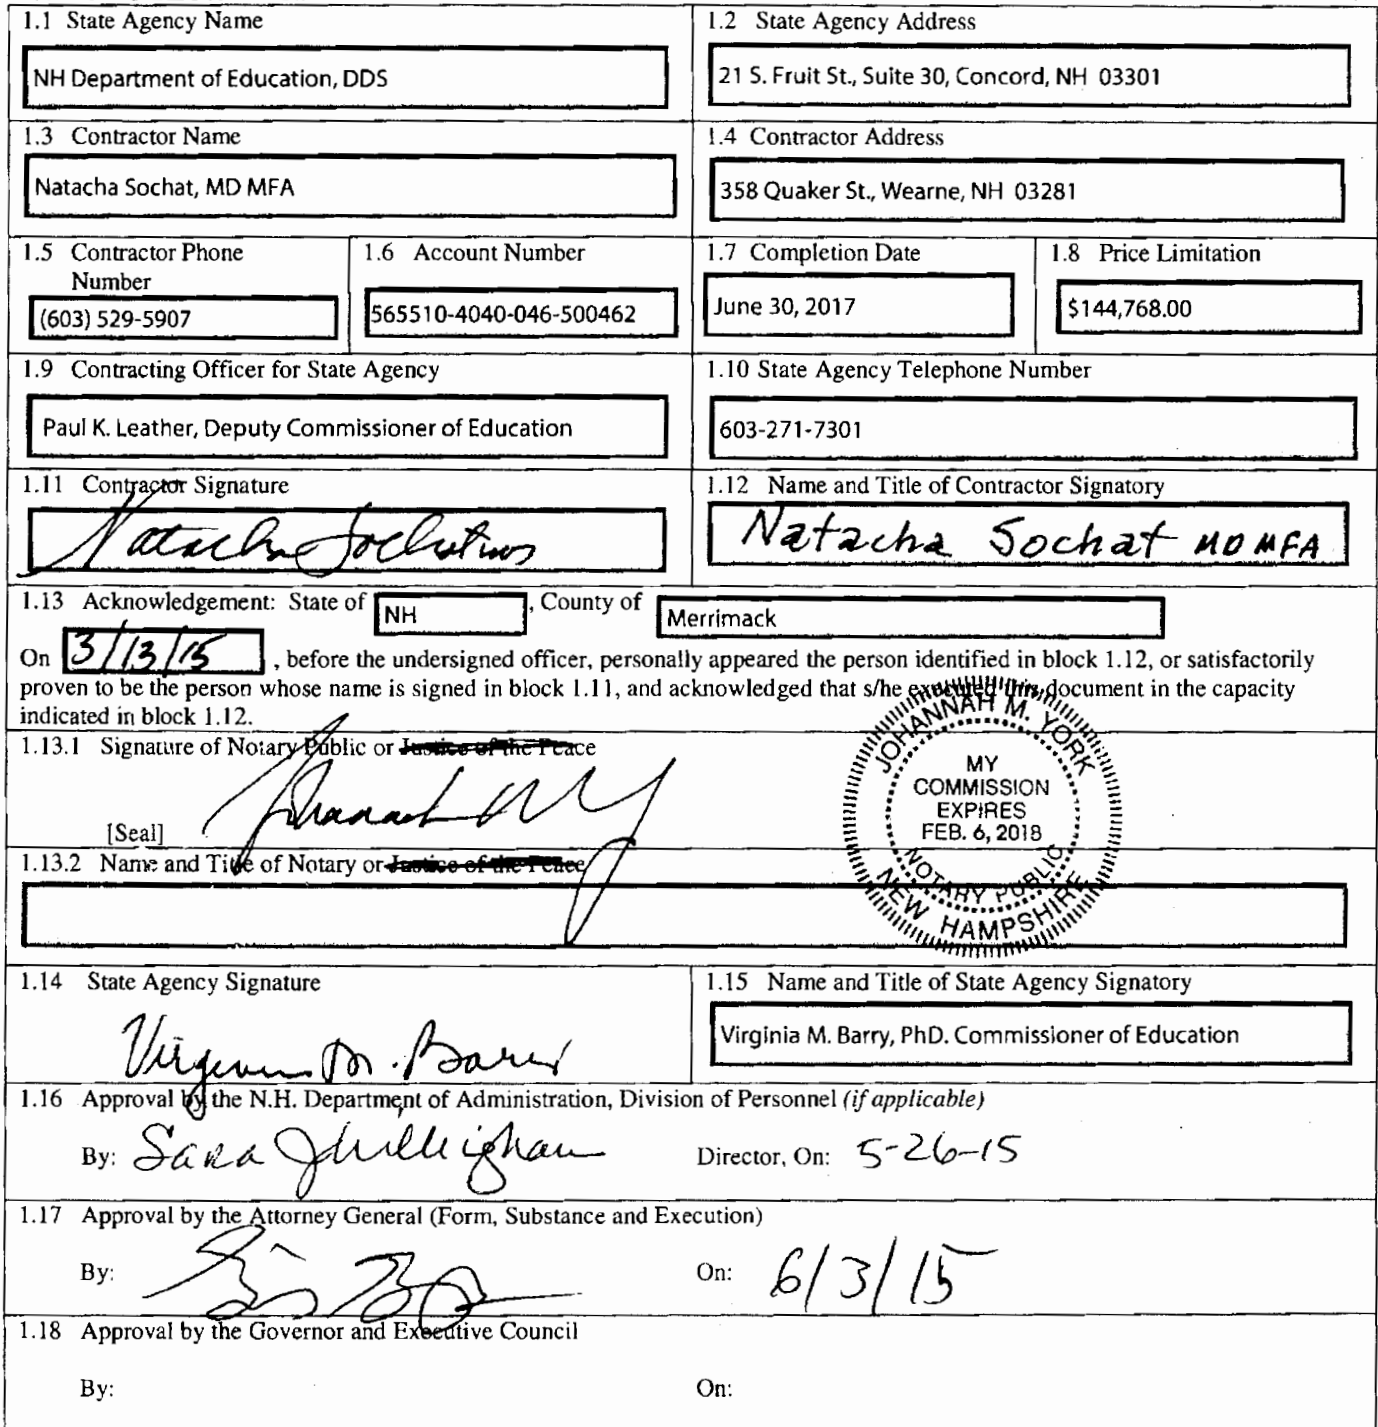 1.1 State Agency Name
NH Department of Education, DDS
1.2 State Agency Address
21 S. Fruit St., Suite 30, Concord, NH 03301
1.3 Contractor Name
Natacha Sochat, MD MFA
1.4 Contractor Address
358 Quaker St., Wearne, NH 03281
1.5 Contractor Phone
Number
(603) 529-5907
1.6 Account Number
565510-4040-046-500462
1.7 Completion Date
June 30, 2017
1.8 Price Limitation
$144,768.00
1.9 Contracting Officer for State Agency
Paul K. Leather, Deputy Commissioner of Education
1.10 State Agency Telephone Number
603-271-7301
1.11 Contractor Signature
Natacha
1.12 Name and Title of Contractor Signatory
Natacha Sochat MD MFA
1.13 Acknowledgement: State of NH, County of Merrimack
On 3/13/15, before the undersigned officer, personally appeared the person identified in block 1.12, or satisfactorily
proven to be the person whose name is signed in block 1.11, and acknowledged that s/he executed this document in the capacity
indicated in block 1.12.
1.13.1 Signature of Notary Public or Justice of the Peace
[Seal]
JOHANNAH M. YORK
MY
COMMISSION
EXPIRES
FEB. 6, 2018
NOTARY PUBLIC
NEW HAMPSHIRE
1.13.2 Name and Title of Notary or Justice of the Peace
1.14 State Agency Signature
Virginia M. Barry
1.15 Name and Title of State Agency Signatory
Virginia M. Barry, PhD. Commissioner of Education
1.16 Approval by the N.H. Department of Administration, Division of Personnel (if applicable)
By: Sara Director, On: 5-26-15
1.17 Approval by the Attorney General (Form, Substance and Execution)
By: On: 6/3/15
1.18 Approval by the Governor and Executive Council
By: On: